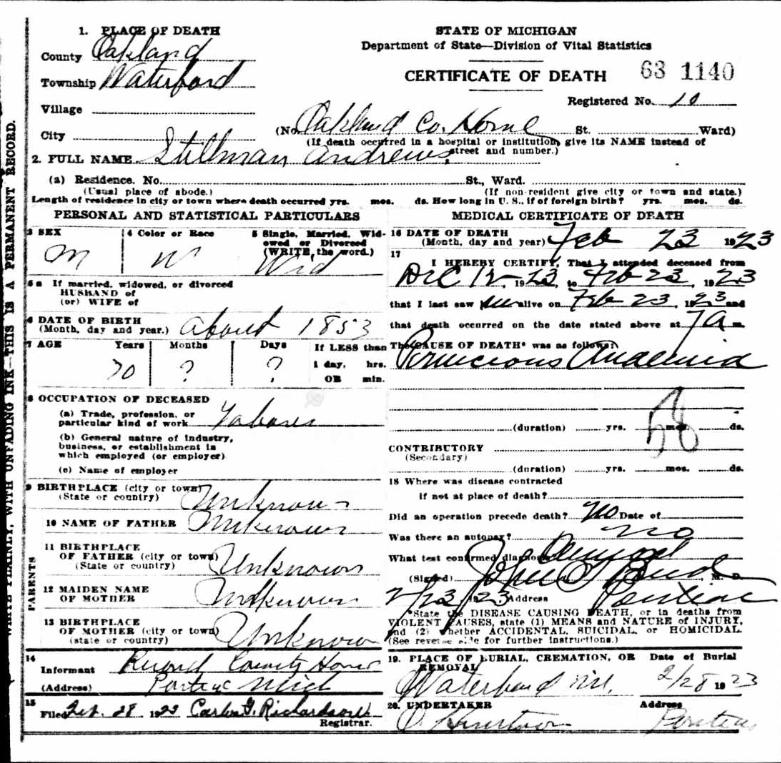 1. PLACE OF DEATH
County Oakland
Township Waterford
Village
City
STATE OF MICHIGAN
Department of State—Division of Vital Statistics
CERTIFICATE OF DEATH 63 1140
Registered No. 10
(No. Oakland Co. Home St. Ward)
(If death occurred in a hospital or institution, give its NAME instead of street and number.)
2. FULL NAME Stillman Andrews
(a) Residence. No. St., Ward.
(Usual place of abode.) (If non-resident give city or town and state.)
Length of residence in city or town where death occurred yrs. mos. ds. How long in U. S., if of foreign birth? yrs. mos. ds.
PERSONAL AND STATISTICAL PARTICULARS
3 SEX M
4 Color or Race W
5 Single, Married, Widowed or Divorced (WRITE the word.) Wid
5a If married, widowed, or divorced
HUSBAND of
(or) WIFE of
6 DATE OF BIRTH
(Month, day and year.) About 1853
7 AGE Years Months Days If LESS than
1 day, hrs.
OR min.
70 ? ?
8 OCCUPATION OF DECEASED
(a) Trade, profession, or
particular kind of work Laborer
(b) General nature of industry,
business, or establishment in
which employed (or employer)
(c) Name of employer
9 BIRTHPLACE (city or town)
(State or country) Unknown
10 NAME OF FATHER Unknown
11 BIRTHPLACE
OF FATHER (city or town)
(State or country) Unknown
12 MAIDEN NAME
OF MOTHER Unknown
13 BIRTHPLACE
OF MOTHER (city or town)
(state or country) Unknown
PARENTS
14
Informant Record County Home
(Address) Pontiac Mich
15
Filed Feb. 28 1923 Richardson
Registrar.
MEDICAL CERTIFICATE OF DEATH
16 DATE OF DEATH
(Month, day and year) Feb 23 1923
17
I HEREBY CERTIFY, That I attended deceased from
Dec 12 1923 to Feb 23, 1923
that I last saw alive on Feb 23, 23 and
that death occurred on the date stated above at 7 a m.
The CAUSE OF DEATH* was as follows:
Pernicious Anaemia
(duration) yrs. mos. ds.
58
CONTRIBUTORY
(Secondary)
(duration) yrs. mos. ds.
18 Where was disease contracted
if not at place of death?
Did an operation precede death? No Date of
Was there an autopsy? No
What test confirmed diagnosis?
(Signed) John
2/23 1923 Address Pontiac
*State the DISEASE CAUSING DEATH, or in deaths from
VIOLENT CAUSES, state (1) MEANS and NATURE OF INJURY,
and (2) whether ACCIDENTAL, SUICIDAL, or HOMICIDAL.
(See reverse side for further instructions.)
19. PLACE OF BURIAL, CREMATION, OR REMOVAL Date of Burial
2/28 1923
20. UNDERTAKER Address
Pontiac
WRITE PLAINLY, WITH UNFADING INK—THIS IS A PERMANENT RECORD.